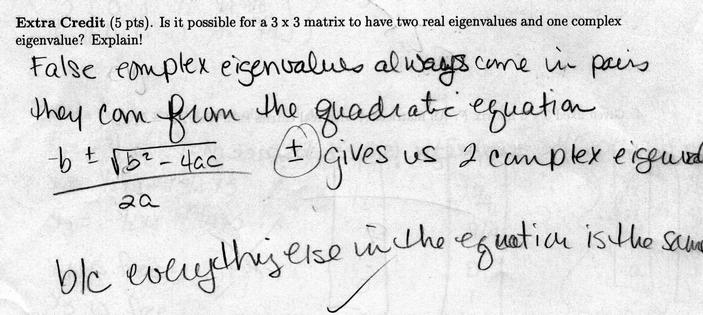 Extra Credit (5 pts). Is it possible for a 3 x 3 matrix to have two real eigenvalues and one complex
eigenvalue? Explain!
False complex eigenvalues always come in pairs
they com from the quadratic equation
-b ± √b² - 4ac ± gives us 2 complex eigenval
2a
b/c everything else in the equation is the same